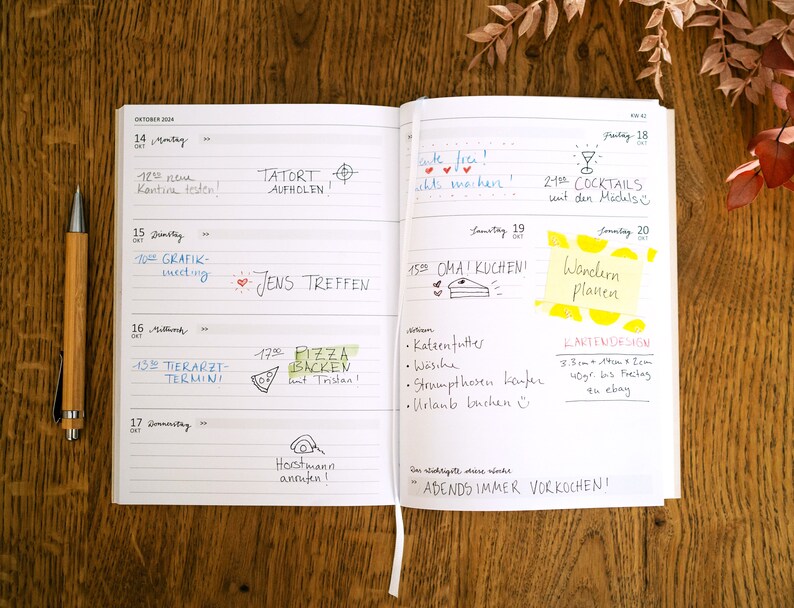 OKTOBER 2024
14 OKT Montag >>
12⁰⁰ neue
Kantine testen!
TATORT
AUFHOLEN!
15 OKT Dienstag >>
10⁰⁰ GRAFIK-
meeting
JENS TREFFEN
16 OKT Mittwoch >>
13³⁰ TIERARZT-
TERMIN!
17⁰⁰ PIZZA
BACKEN
mit Tristan!
17 OKT Donnerstag >>
Horstmann
anrufen!
KW 42
Freitag 18 OKT
frei!
machen!
21⁰⁰ COCKTAILS
mit den Mädels
Samstag 19 OKT
15⁰⁰ OMA! KUCHEN!
Sonntag 20 OKT
Wandern
planen
Notizen
• Katzenfutter
• Wäsche
• Strumpfhosen kaufen
• Urlaub buchen
KARTENDESIGN
3.3cm + 14cm x 2cm
40gr. bis Freitag
zu ebay
Das wichtigste diese Woche
>> ABENDS IMMER VORKOCHEN!